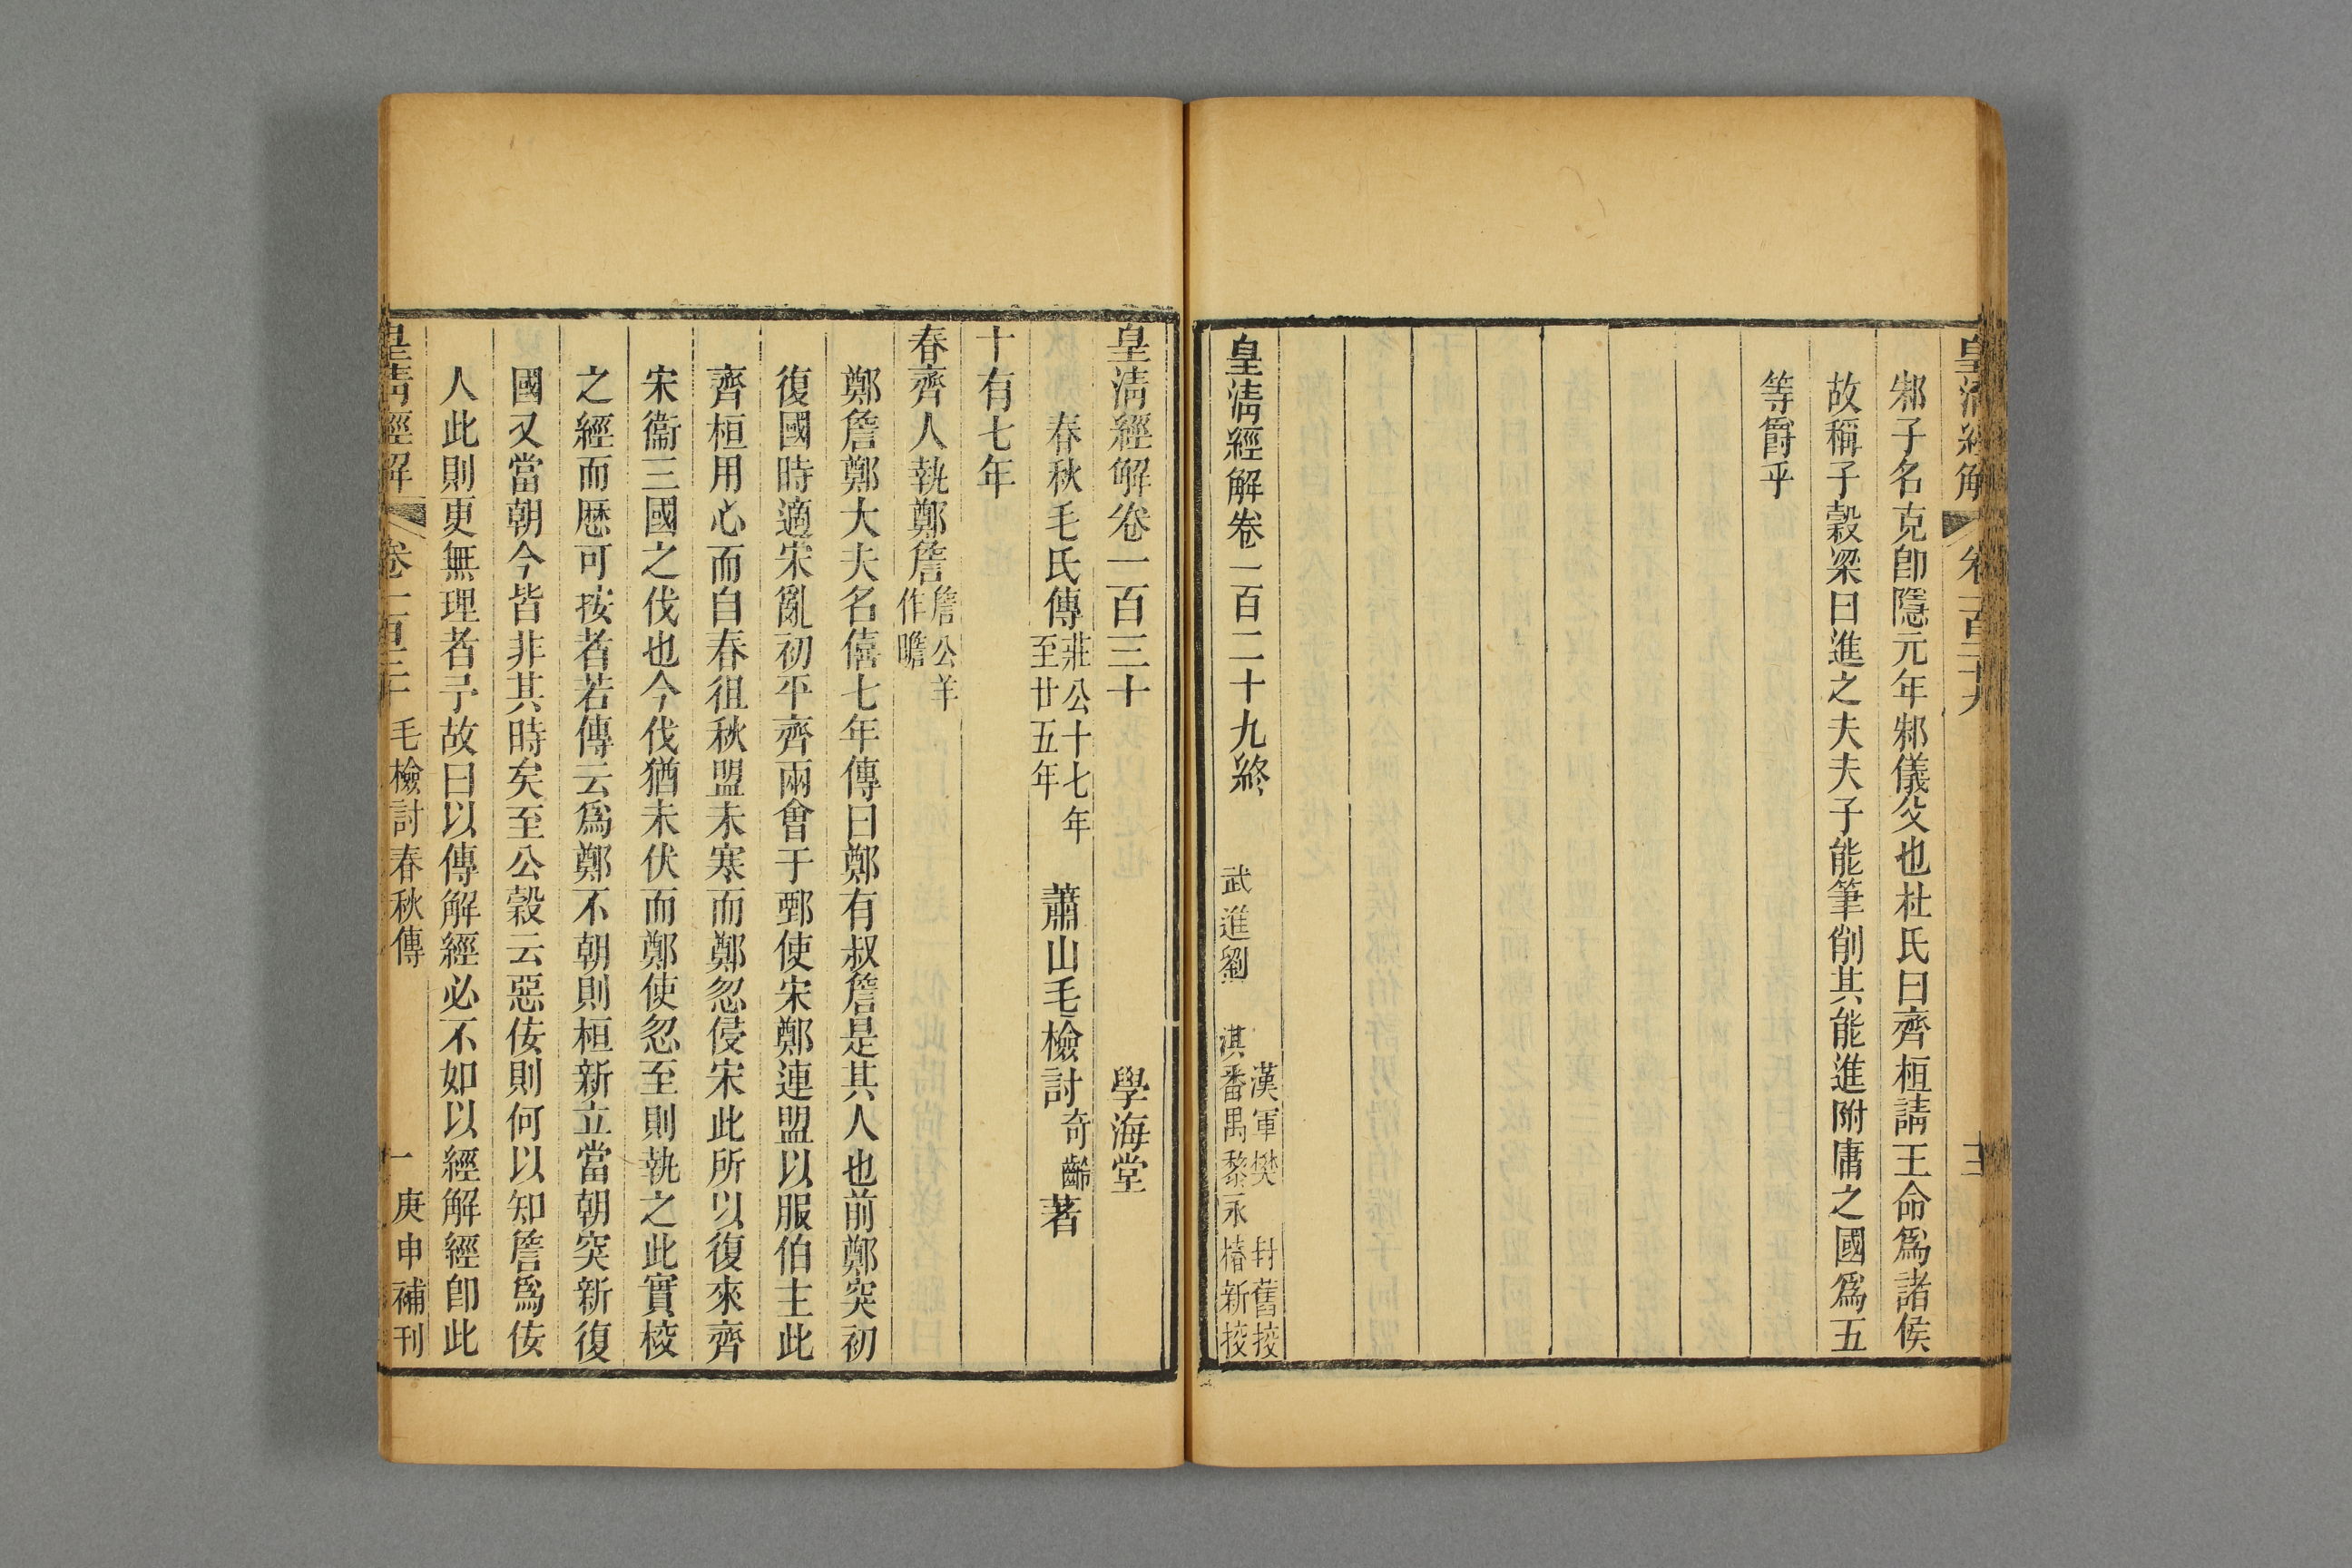 皇清經解
卷一百二十九
十三
邾子名克卽隱元年邾儀父也杜氏曰齊桓請王命爲諸侯
故稱子穀梁曰進之夫夫子能筆削其能進附庸之國爲五
等爵乎
皇清經解卷一百二十九終
漢軍樊封舊挍
武進劉淇番禺黎永椿新挍
皇清經解卷一百三十
學海堂
春秋毛氏傳莊公十七年至廿五年
蕭山毛檢討奇齡著
十有七年
春齊人執鄭詹詹公羊作瞻
鄭詹鄭大夫名僖七年傳曰鄭有叔詹是其人也前鄭突初
復國時適宋亂初平齊兩會于鄄使宋鄭連盟以服伯主此
齊桓用心而自春徂秋盟未寒而鄭忽侵宋此所以復來齊
宋衞三國之伐也今伐猶未伏而鄭使忽至則執之此實校
之經而歷可按者若傳云爲鄭不朝則桓新立當朝突新復
國又當朝今皆非其時矣至公穀云惡佞則何以知詹爲佞
人此則更無理者予故曰以傳解經必不如以經解經卽此
皇清經解
卷一百三十
毛檢討春秋傳
一
庚申補刊